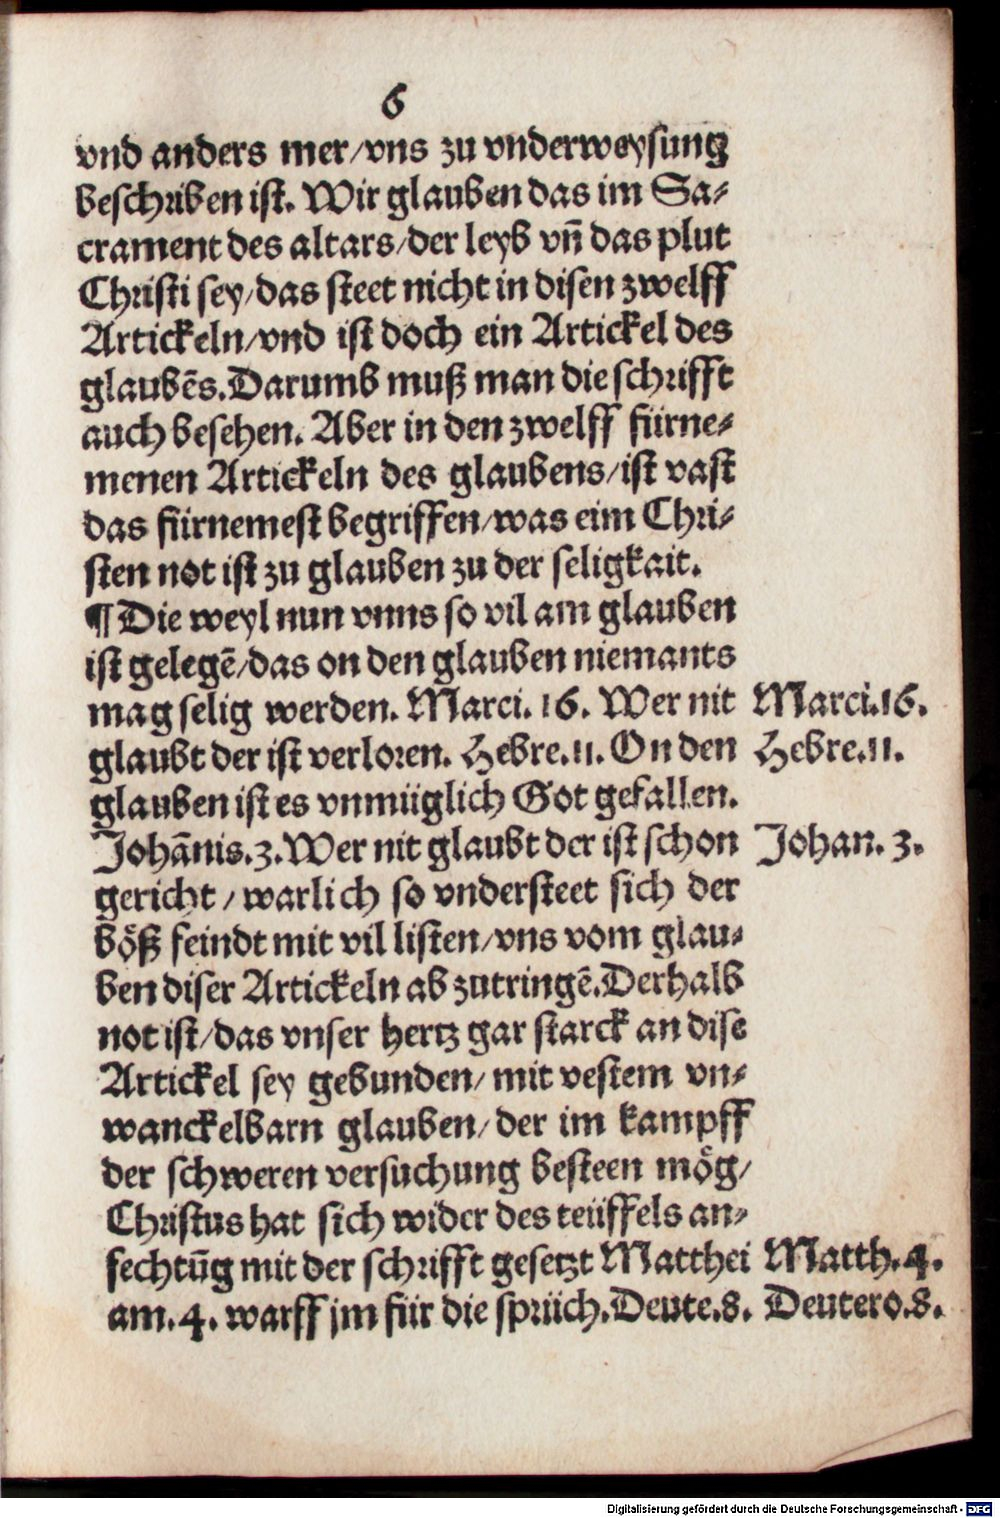 6
vnd anders mer/vns zu vnderweysung
beschriben ist. Wir glauben das im Sa⸗
crament des altars/der leyb vn̄ das plut
Christi sey/das steet nicht in disen zwelff
Artickeln/vnd ist doch ein Artickel des
glaubēs. Darumb muß man die schrifft
auch besehen. Aber in den zwelff fürne⸗
menen Artickeln des glaubens/ist vast
das fürnemest begriffen/was eim Chri⸗
sten not ist zu glauben zu der seligkait.
¶ Die weyl nun vnns so vil am glauben
ist gelegē/das on den glauben niemants
mag selig werden. Marci. 16. Wer nit Marci.16.
glaubt der ist verloren. Hebre.11. On den Hebre.11.
glauben ist es vnmüglich Got gefallen.
Johānis.3. Wer nit glaubt der ist schon Johan. 3.
gericht / warlich so vndersteet sich der
böß feindt mit vil listen/vns vom glau⸗
ben diser Artickeln ab zutringē. Derhalb
not ist/das vnser hertz gar starck an dise
Artickel sey gebunden/mit vestem vn⸗
wanckelbarn glauben/der im kampff
der schweren versuchung besteen mög/
Christus hat sich wider des teüffels an⸗
fechtūg mit der schrifft gesetzt Matthei Matth.4.
am.4. warff jm für die sprüch. Deute.8. Deutero.8.
Digitalisierung gefördert durch die Deutsche Forschungsgemeinschaft - DFG